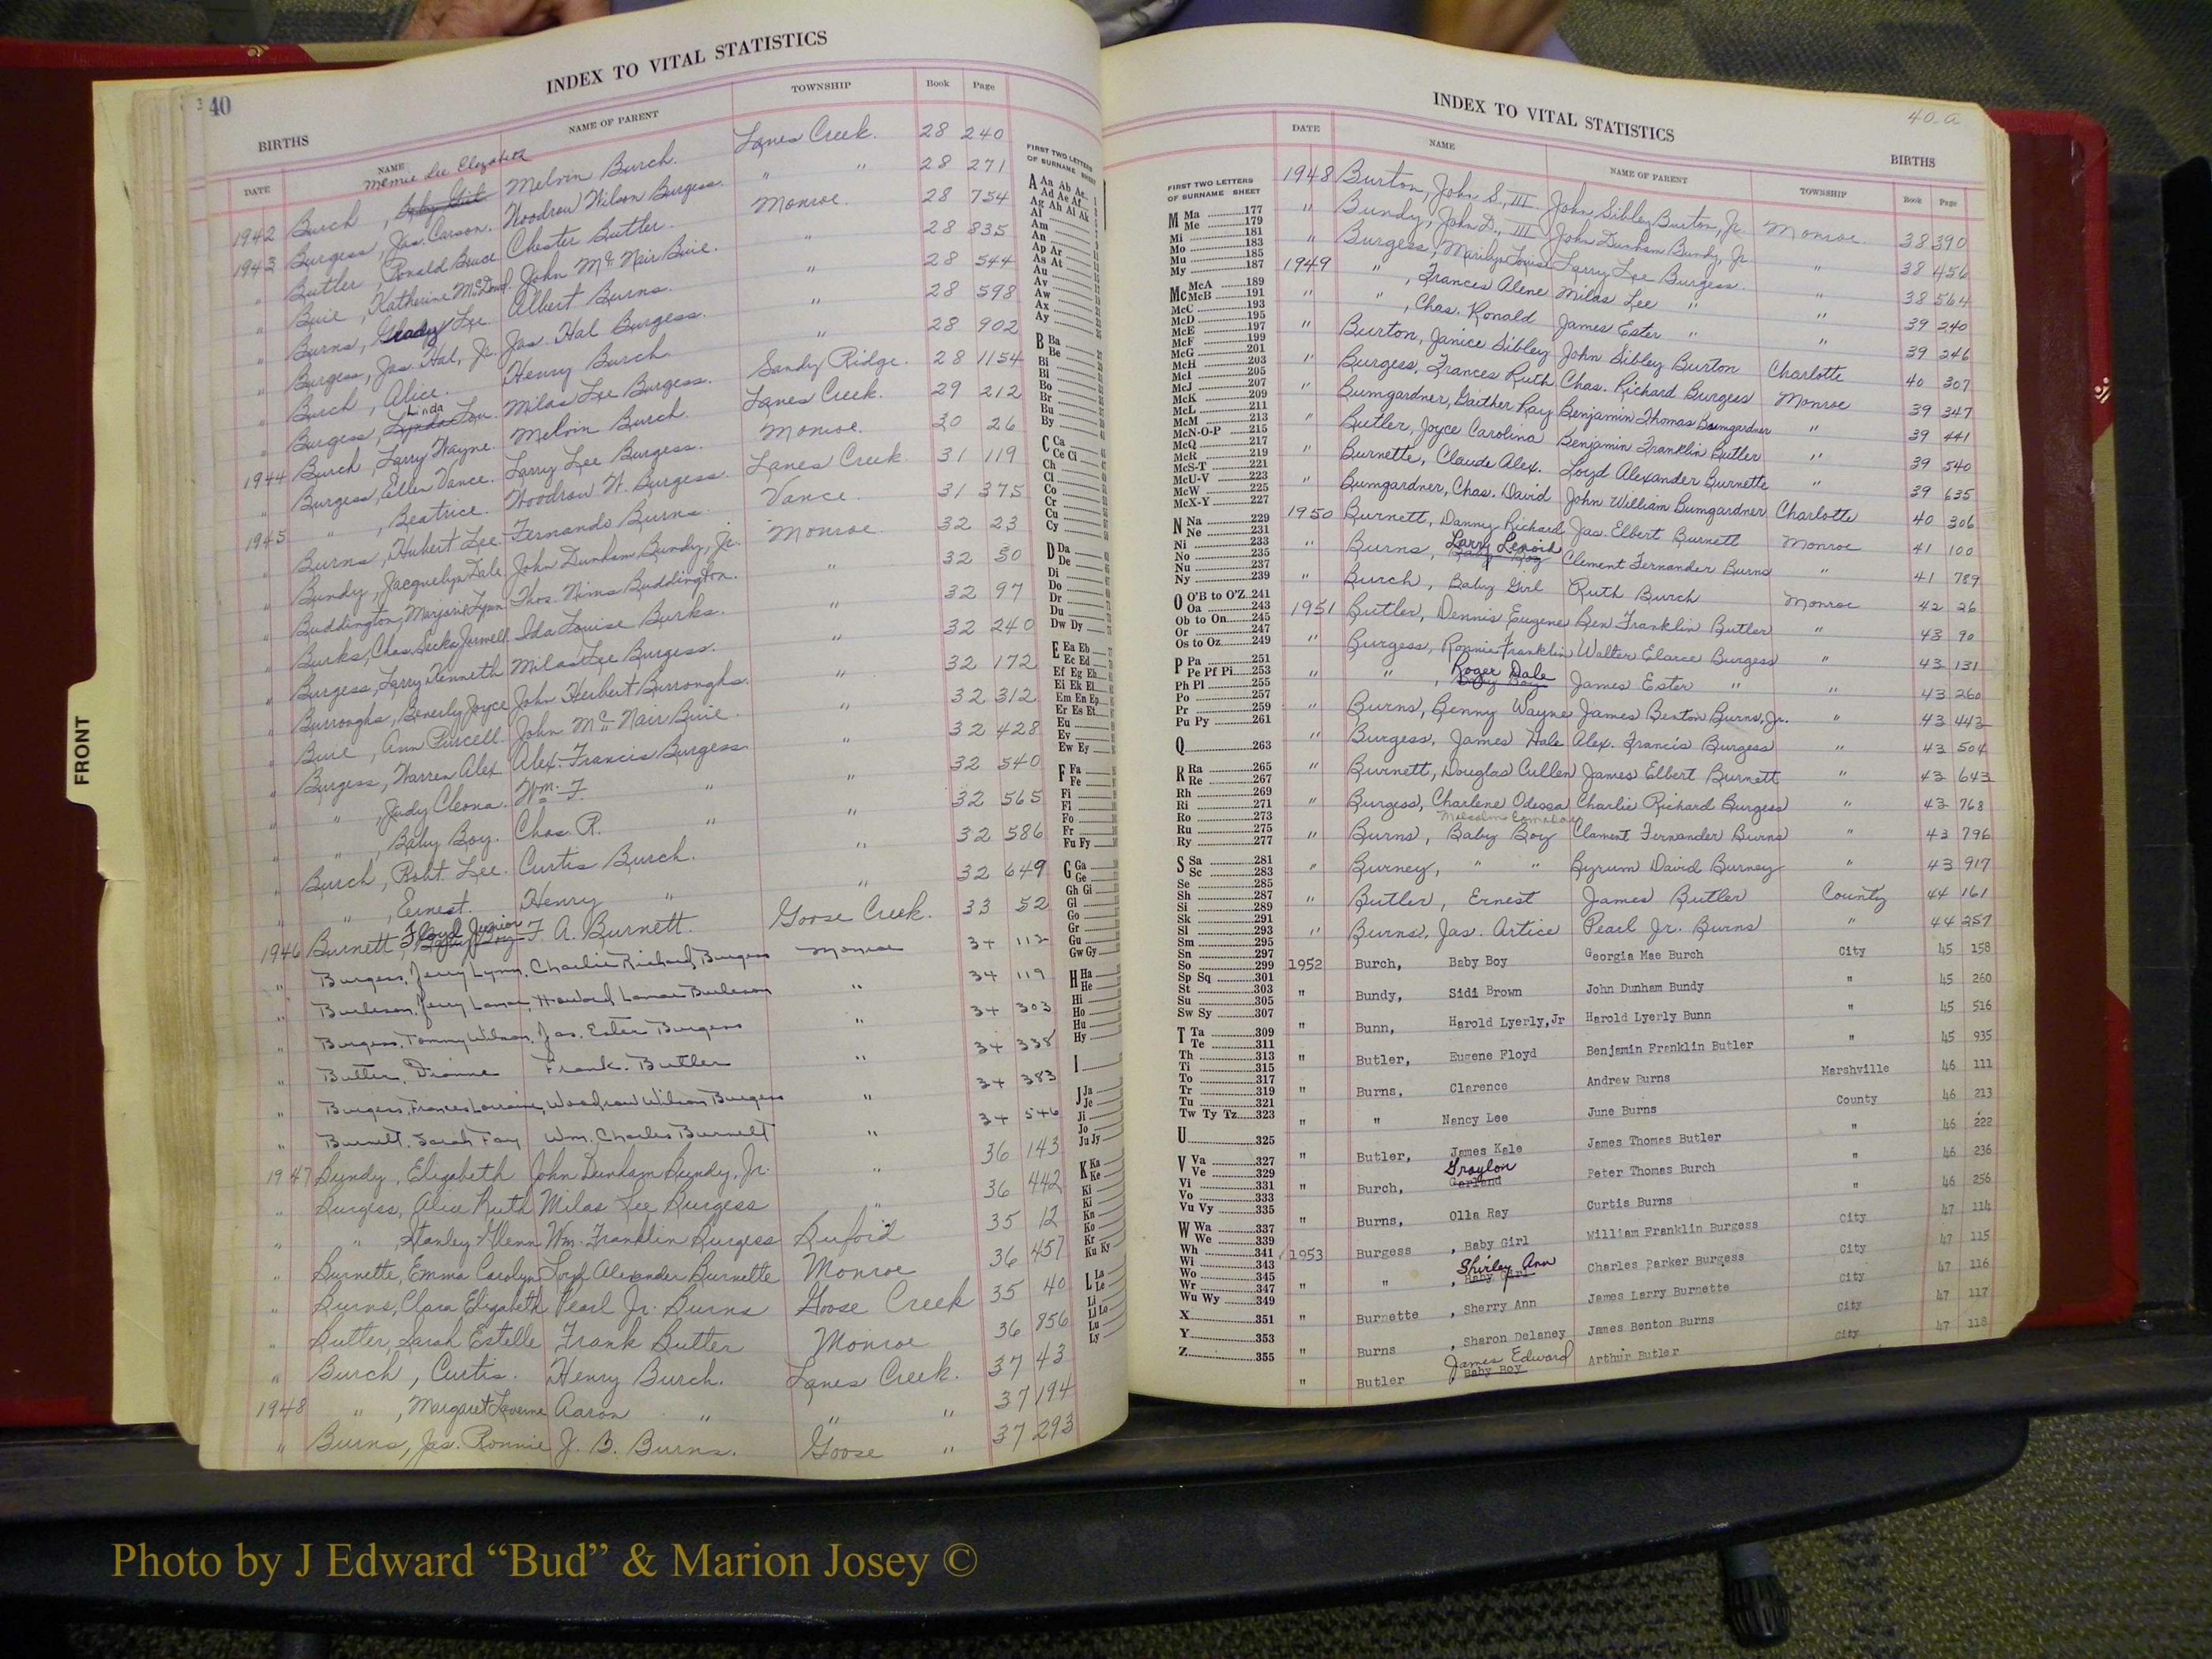 40
INDEX TO VITAL STATISTICS
BIRTHS
DATE NAME NAME OF PARENT TOWNSHIP Book Page
Mamie Lee Elizabeth
1942 Burch, Baby Girl Melvin Burch. Lanes Creek. 28 240
1943 Burgess, Jas. Carson. Woodrow Wilson Burgess. " " 28 271
" Butler, Ronald Bruce Chester Butler. Monroe. 28 754
" Buie, Katherine McDow John McNair Buie. " 28 835
" Burns, Grady Lee Albert Burns. 28 544
" Burgess, Jas. Hal, Jr. Jas. Hal Burgess. " 28 598
" Burch, Alice. Henry Burch. " 28 902
Linda
" Burgess, Lynda Lou. Milas Lee Burgess. Sandy Ridge. 28 1154
1944 Burch, Larry Wayne. Melvin Burch. Lanes Creek. 29 212
" Burgess, Ellen Vance. Larry Lee Burgess. Monroe. 30 26
1945 " , Beatrice. Woodrow W. Burgess. Lanes Creek. 31 119
" Burns, Hubert Lee. Fernando Burns. Vance. 31 375
" Bundy, Jacquelyn Dale John Dunham Bundy, Jr. Monroe. 32 23
" Buddington, Marjorie Lynn Thos. Nims Buddington. " 32 50
" Burks, Chas. Jarnell Ida Louise Burks. " 32 97
" Burgess, Larry Kenneth Milas Lee Burgess. " 32 240
" Burroughs, Beverly Joyce John Herbert Burroughs. " 32 172
" Buie, Ann Purcell. John McNair Buie. " 32 312
" Burgess, Warren Alex Alex. Francis Burgess. " 32 428
" " , Judy Cleona. Wm. F. " " 32 540
" " , Baby Boy. Chas. R. " " 32 565
" Burch, Robt. Lee. Curtis Burch. " 32 586
" " , Ernest. Henry " " 32 649
Floyd Junior
1946 Burnett, Baby Boy F. A. Burnett. Goose Creek. 33 52
" Burgess, Jerry Lynn, Charlie Richard Burgess Monroe 34 112
" Burleson, Jerry Lamar, Howard Lamar Burleson " 34 119
" Burgess, Tommy Wilson, Jas. Ester Burgess " 34 303
" Butler, Dianne Frank. Butler " 34 338
" Burgess, Frances Lorraine, Woodrow Wilson Burgess " 34 383
" Burnett, Sarah Fay Wm. Charles Burnett " 34 546
1947 Bundy, Elizabeth John Dunham Bundy, Jr. " 36 143
" Burgess, Alice Ruth Milas Lee Burgess " 36 442
" " , Stanley Glenn Wm. Franklin Burgess Buford 35 12
" Burnette, Emma Carolyn Loyd Alexander Burnette Monroe 36 457
" Burns, Clara Elizabeth Pearl Jr. Burns Goose Creek 35 40
" Butler, Sarah Estelle Frank Butler Monroe 36 856
" Burch, Curtis. Henry Burch. Lanes Creek. 37 43
1948 " , Margaret Laverne Aaron " " " 37 194
" Burns, Jas. Ronnie J. B. Burns. Goose " 37 293
FIRST TWO LETTERS
OF SURNAME SHEET
A Aa Ab Ac
Ad Ae Af
Ag Ah Ai Ak
Al
Am
An
Ap Ar
As At
Au
Av
Aw
Ax
Ay
B Ba
Be
Bi
Bl
Bo
Br
Bu
By
C Ca
Ce Ci
Ch
Cl
Co
Cr
Cu
Cy
D Da
De
Di
Do
Dr
Du
Dw Dy
E Ea Eb
Ec Ed
Ef Eg Eh
Ei Ek El
Em En Ep
Er Es Et
Eu
Ev
Ew Ey
F Fa
Fe
Fi
Fl
Fo
Fr
Fu Fy
G Ga
Ge
Gh Gi
Gl
Go
Gr
Gu
Gw Gy
H Ha
He
Hi
Ho
Hu
Hy
I
J Ja
Je
Ji
Jo
Ju Jy
K Ka
Ke
Ki
Kl
Kn
Ko
Kr
Ku Ky
L La
Le
Li
Ll Lo
Lu
Ly
FRONT
40-a
INDEX TO VITAL STATISTICS
BIRTHS
FIRST TWO LETTERS
OF SURNAME SHEET
M Ma 177
Me 179
Mi 181
Mo 183
Mu 185
My 187
Mc McA 189
McB 191
McC 193
McD 195
McE 197
McF 199
McG 201
McH 203
McI 205
McJ 207
McK 209
McL 211
McM 213
McN-O-P 215
McQ 217
McR 219
McS-T 221
McU-V 223
McW 225
McX-Y 227
N Na 229
Ne 231
Ni 233
No 235
Nu 237
Ny 239
O O'B to O'Z 241
Oa 243
Ob to On 245
Or 247
Os to Oz 249
P Pa 251
Pe Pf Pi 253
Ph Pl 255
Po 257
Pr 259
Pu Py 261
Q 263
R Ra 265
Re 267
Rh 269
Ri 271
Ro 273
Ru 275
Ry 277
S Sa 281
Sc 283
Se 285
Sh 287
Si 289
Sk 291
Sl 293
Sm 295
Sn 297
So 299
Sp Sq 301
St 303
Su 305
Sw Sy 307
T Ta 309
Te 311
Th 313
Ti 315
To 317
Tr 319
Tu 321
Tw Ty Tz 323
U 325
V Va 327
Ve 329
Vi 331
Vo 333
Vu Vy 335
W Wa 337
We 339
Wh 341
Wi 343
Wo 345
Wr 347
Wu Wy 349
X 351
Y 353
Z 355
DATE NAME NAME OF PARENT TOWNSHIP Book Page
1948 Burton, John S., III John Sibley Burton, Jr. Monroe 38 390
" Bundy, John D., III John Dunham Bundy, Jr. " 38 456
" Burgess, Marilyn Louise Larry Lee Burgess. " 38 564
1949 " , Frances Alene Milas Lee " " 39 240
" " , Chas. Ronald James Ester " " 39 246
" Burton, Janice Sibley John Sibley Burton Charlotte 40 307
" Burgess, Frances Ruth Chas. Richard Burgess Monroe 39 347
" Bumgardner, Gaither Ray Benjamin Thomas Bumgardner " 39 441
" Butler, Joyce Carolina Benjamin Franklin Butler " 39 540
" Burnette, Claude Alex. Loyd Alexander Burnette " 39 635
" Bumgardner, Chas. David John William Bumgardner Charlotte 40 306
1950 Burnett, Danny Richard Jas. Elbert Burnett Monroe 41 100
Larry Lenoid
" Burns, Baby Boy Clement Fernander Burns " 41 789
" Burch, Baby Girl Ruth Burch Monroe 42 26
1951 Butler, Dennis Eugene Ben Franklin Butler " 43 90
" Burgess, Ronnie Franklin Walter Elarce Burgess " 43 131
Roger Dale
" " , Baby Boy James Ester " " 43 260
" Burns, Benny Wayne James Benton Burns, Jr. " 43 443
" Burgess, James Hale Alex. Francis Burgess " 43 504
" Burnett, Douglas Cullen James Elbert Burnett " 43 643
" Burgess, Charlene Odessa Charlie Richard Burgess " 43 768
Malcolm
" Burns, Baby Boy Clement Fernander Burns " 43 796
" Burney, " " Byrum David Burney " 43 917
" Butler, Ernest James Butler County 44 161
" Burns, Jas. Artice Pearl Jr. Burns " 44 257
1952 Burch, Baby Boy Georgia Mae Burch City 45 158
" Bundy, Sidi Brown John Dunham Bundy " 45 260
" Bunn, Harold Lyerly, Jr Harold Lyerly Bunn " 45 516
" Butler, Eugene Floyd Benjamin Franklin Butler " 45 935
" Burns, Clarence Andrew Burns Marshville 46 111
" " Nancy Lee June Burns County 46 213
" Butler, James Kale James Thomas Butler " 46 222
Graylon
" Burch, Garland Peter Thomas Burch " 46 236
" Burns, Olla Ray Curtis Burns " 46 256
1953 Burgess , Baby Girl William Franklin Burgess City 47 114
Shirley Ann
" " , Baby Girl Charles Parker Burgess City 47 115
" Burnette , Sherry Ann James Larry Burnette City 47 116
" Burns , Sharon Delaney James Benton Burns City 47 117
James Edward
" Butler Baby Boy Arthur Butler City 47 118
Photo by J Edward “Bud” & Marion Josey ©